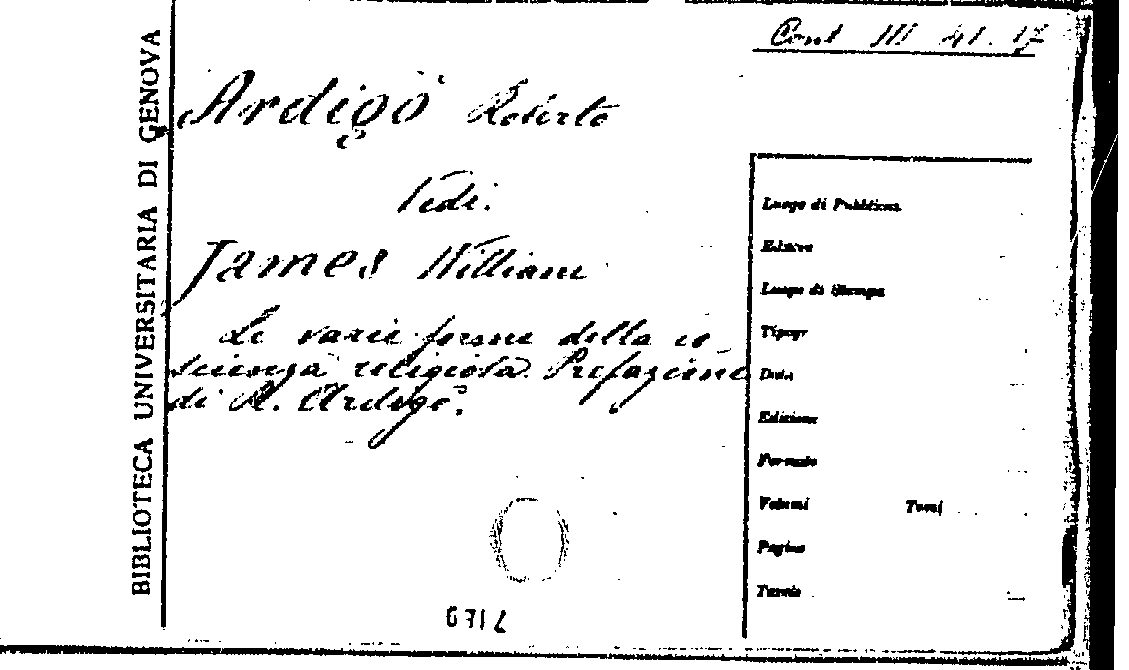 Conl III 41.17
Ardigò Roberto
Vedi.
James William
Le varie forme della co_
scienza religiosa. Prefazione
di R. Ardigò.
BIBLIOTECA UNIVERSITARIA DI GENOVA
Luogo di Pubblicaz.
Editore
Luogo di Stampa
Tipogr
Data
Edizione
Formato
Volumi Tomi
Pagine
Tavole